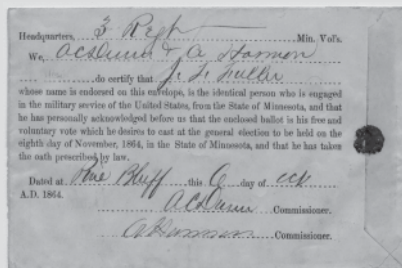 Headquarters, 3 Regt Min. Vol's.
We, A C Dunn & A Harmon
do certify that J. F. Fuller
whose name is endorsed on this envelope, is the identical person who is engaged
in the military service of the United States, from the State of Minnesota, and that
he has personally acknowledged before us that the enclosed ballot is his free and
voluntary vote which he desires to cast at the general election to be held on the
eighth day of November, 1864, in the State of Minnesota, and that he has taken
the oath prescribed by law.
Dated at Pine Bluff this 6 day of
A.D. 1864.
A C Dunn Commissioner.
A Harmon Commissioner.